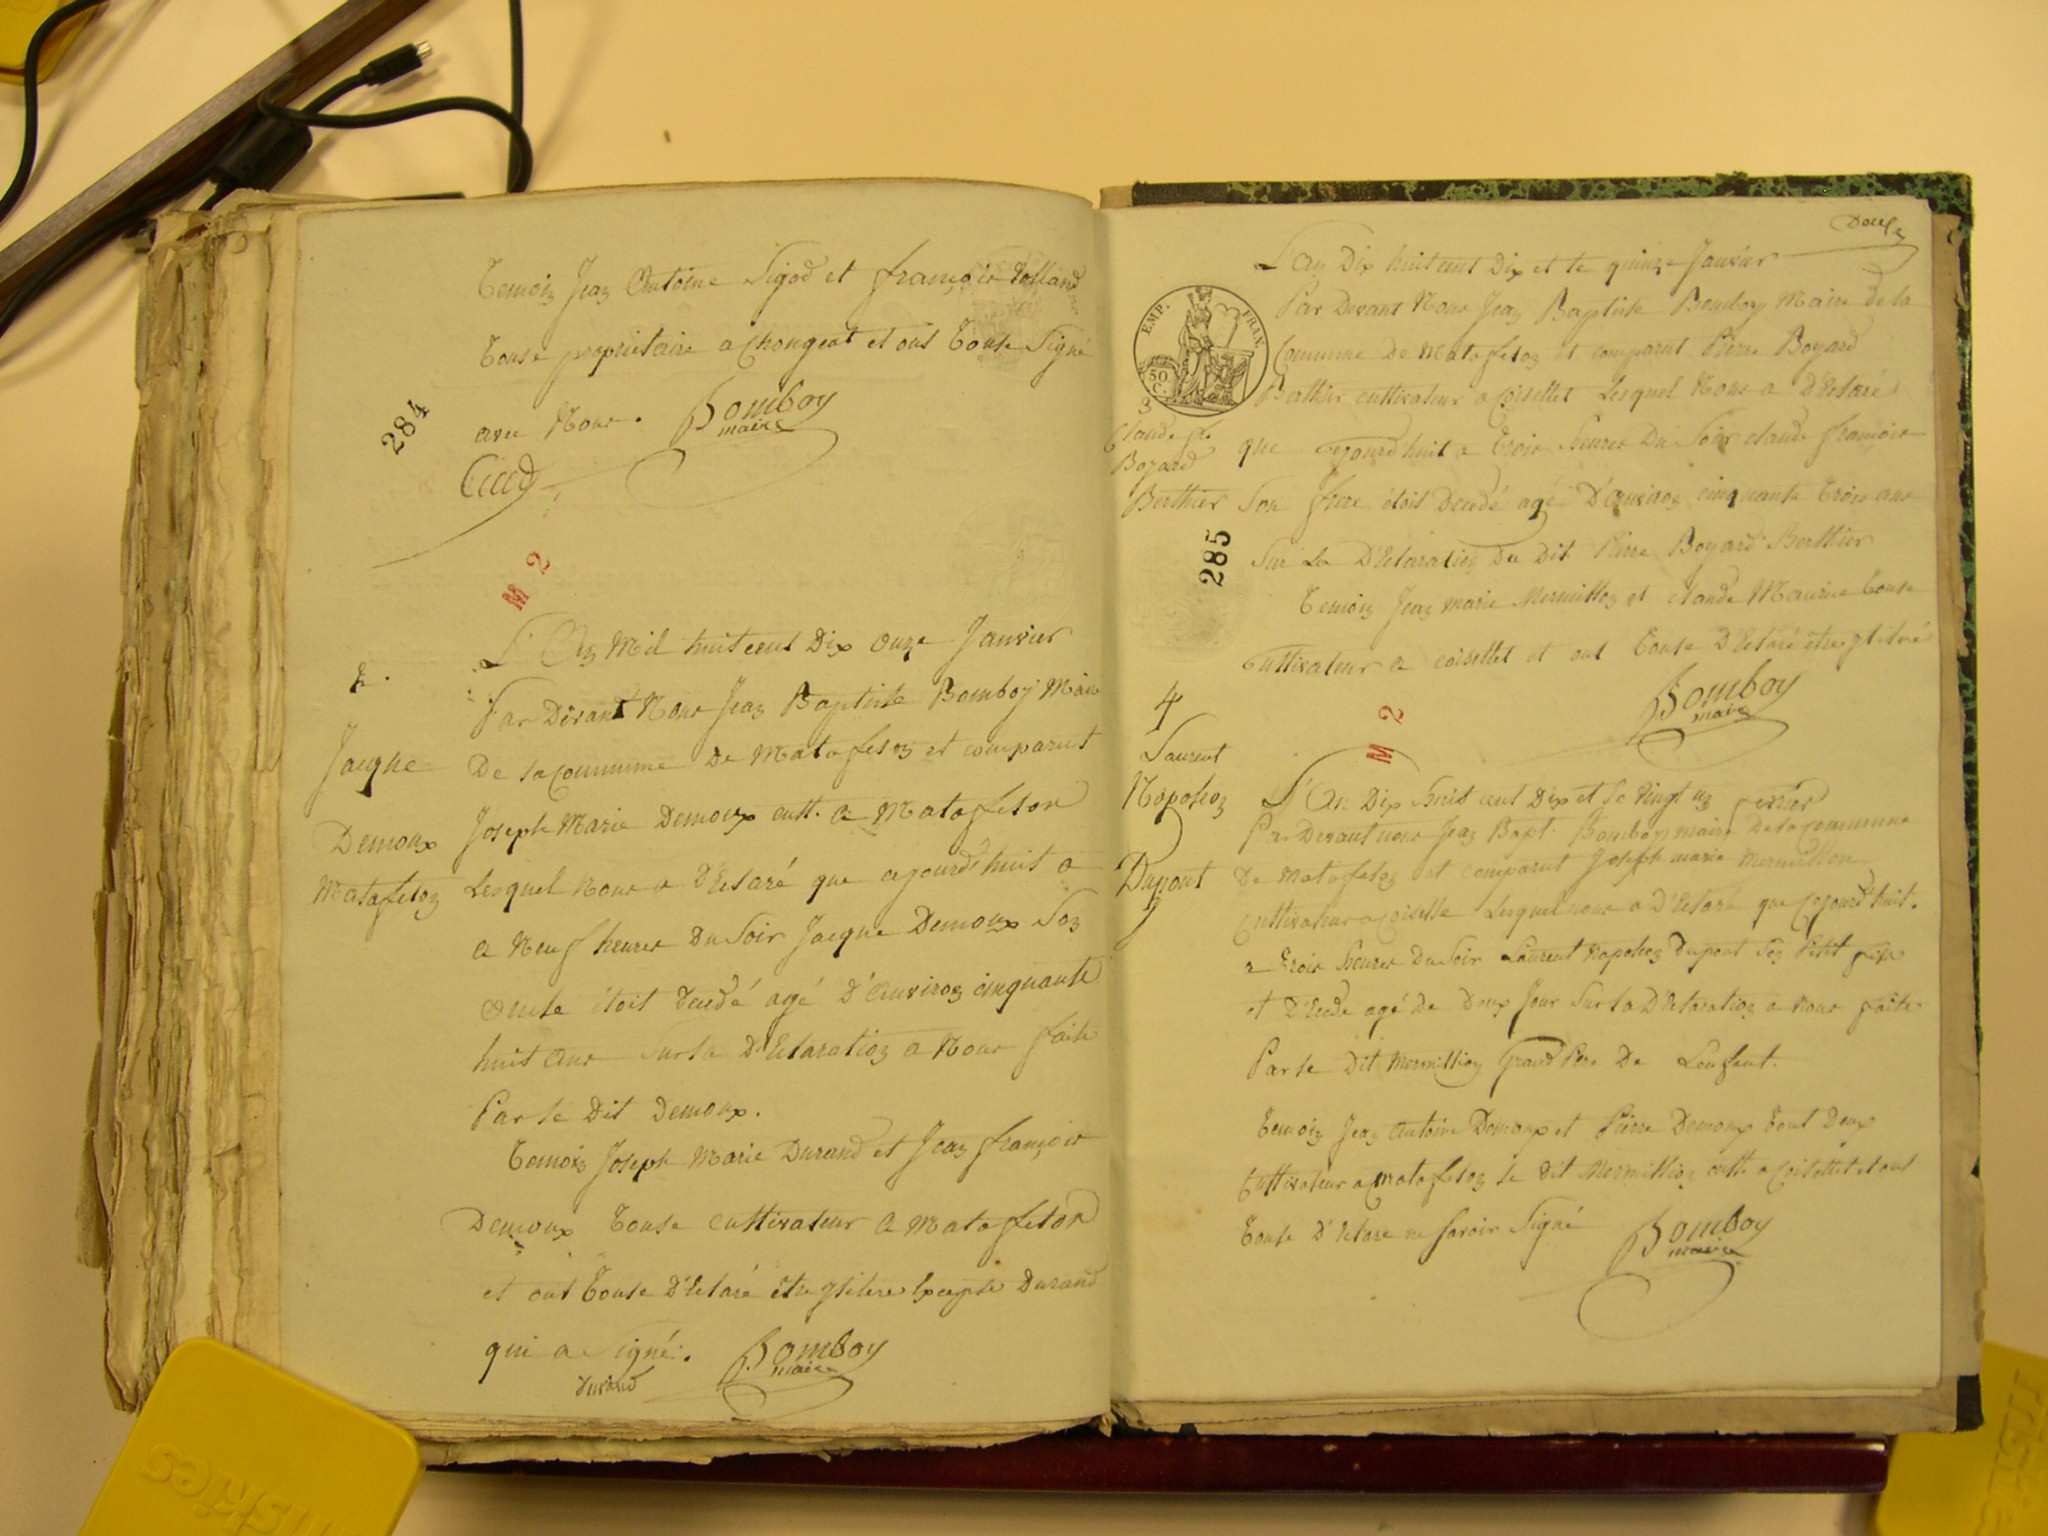 Temoin Jean Antoine Sigod et françois Rolland
Touse propriétaire a Chongeat et ont Touse Signé
avec Nous. Bomboy
maire
284
M 2
2.
L'An Mil huit cent Dix onze Janvier
Par Devant Nous Jean Baptiste Bomboy Maire
Jacque De la Commune De Matafelon et comparut
Demoux Joseph Marie Demoux cult. a Matafelon
Matafelon Lesquel Nous a D'Eclaré que ajourd'huit a
a Neuf heures Du Soir Jacque Demoux Son
oncle étoit Decedé agé D'Environ cinquante
huit ans sur la D'Eclaration a Nous faite
Par le Dit Demoux.
Temoin Joseph Marie Durand et Jean françois
Demoux Touse cultivateur a Matafelon
et ont Touse D'Eclaré être ylitere Excepté Durand
qui a Signé. Bomboy
durand maire
L'an Dix huit cent Dix et le quinze Janvier
EMP. FRAN.
50 C.
Par Devant Nous Jean Baptiste Bomboy Maire de la
Commune De Matafelon et comparut Pierre Boyard
Berthier cultivateur a Coisellet Lesquel Nous a D'Eclaré
3
Claude fr.
Boyard
Berthier
que ajourd'huit a Trois heures Du Soir claude francois
Son frere étoit Decedé agé D'Environ cinquante Trois ans
285
Sur La D'Eclaration Du Dit Pierre Boyard Berthier
Temoin Jean marie Mermillon et claude Maurice Touse
Cultivateur a coisellet et ont Touse D'Eclaré être ylitere
Bomboy
maire
4
M 2
Laurent
Napoleon
Dupont
L'An Dix huit cent Dix et le Vingt un
Par Devant nous Jean Bapt. Bomboy maire De la commune
De Matafelon et comparut Joseph marie Mermillon
Cultivateur a Coiselle Lesquel nous a D'Eclaré que Cejourd'huit.
a Trois heures Du Soir Laurent Napoleon Dupont Son Petit fils
et D'Ecede agé De Deux Jour Sur la D'Eclaration a Nous faite
Par le Dit Mermillion Grand Pere De Lenfent.
Temoin Jean Antoine Demoux et Pierre Demoux Tout Deux
Cultivateur a Matafelon le Dit Mermillion cult a Coisellet et ont
Touse D'Eclare ne savoir Signé Bomboy
maire